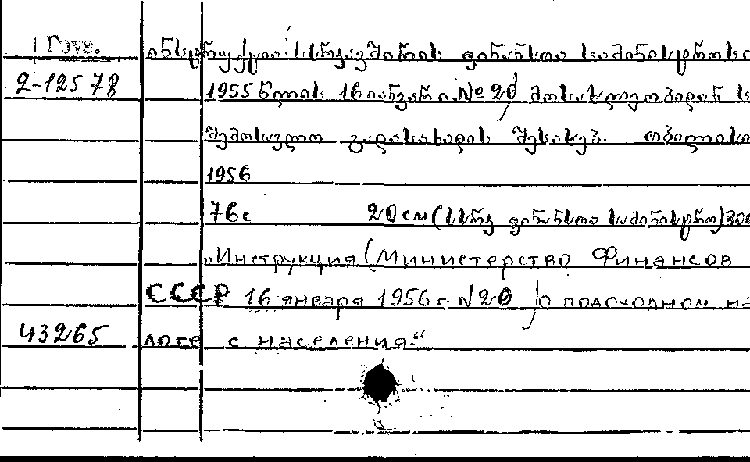 1 Госуд.
ინსტრუქცია სსრკავშირის ფინანსთა სამინისტროსი
2-12578 1955 წლის 16 იანვარი № 20 მოსახლეობიდან
შემოსავლო გადასახადის შესახებ. თბილისი
1956
76с 20см (სსრკ ფინანსთა სამინისტრო)
„Инструкция (Министерство Финансов
СССР 16 января 1956 г. №20 о подоходном на
43265 логе с населения.“